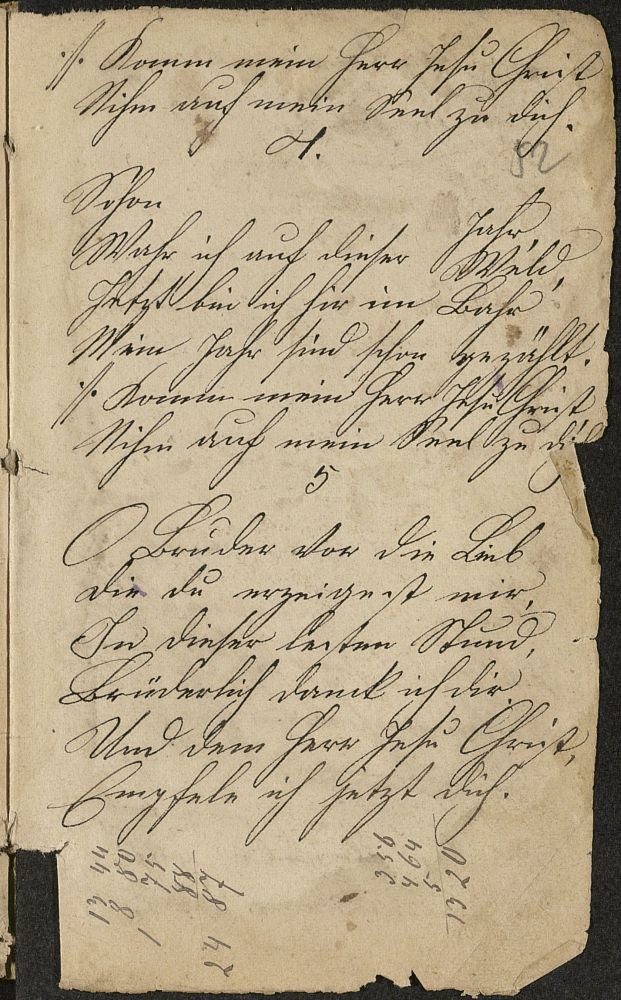 :/: Komm mein Herr Jesu Christ
Nihm auf mein Seel zu dich.
4.
82
Schon
Wahr ich auf dieser Jahr,
Weld,
Jetzt bin ich hir im Bahr
Mein Jahr sind schon gezählt.
:/: Komm mein Herr Jesu Christ
Nihm auf mein Seel zu di
5
O Bruder vor die Lieb
die du erzeigest mir,
In dieser lezten Stund,
Brüderlich danck ich dir
Und dem Herr Jesu Christ,
Empfele ich jetzt dich.